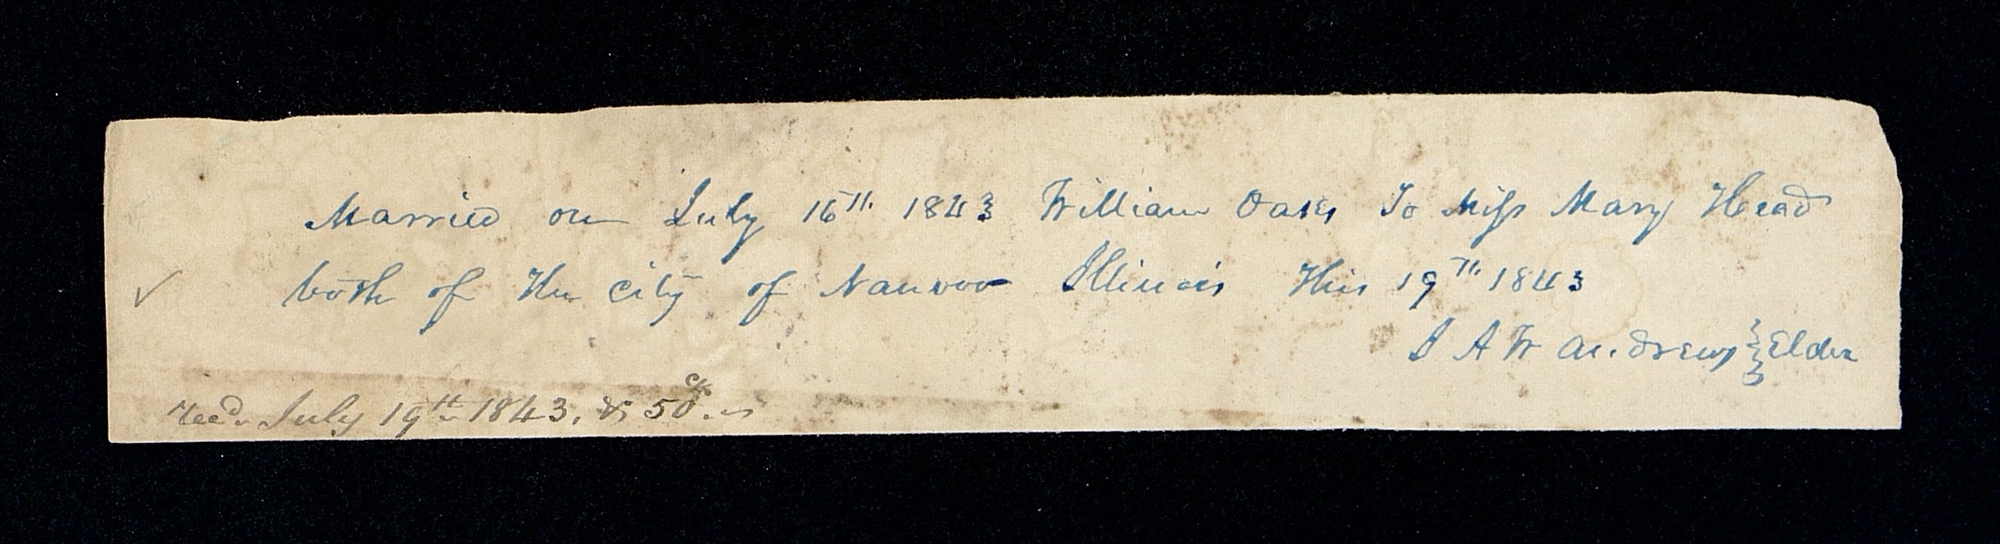 Married on July 16th. 1843 William Oaks To Miss Mary Head
both of the city of Nauvoo Illinois this 19th. 1843
J A W Andrews Elder
recd. July 19th 1843. & 50 cts.